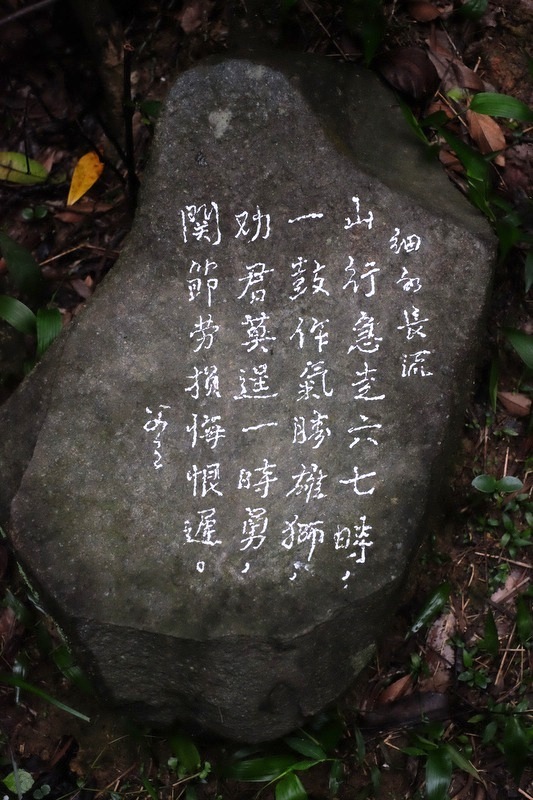 細水長流
山行急走六七時，
一鼓作氣勝雄獅；
劝君莫逞一時勇，
関節劳損悔恨遲。